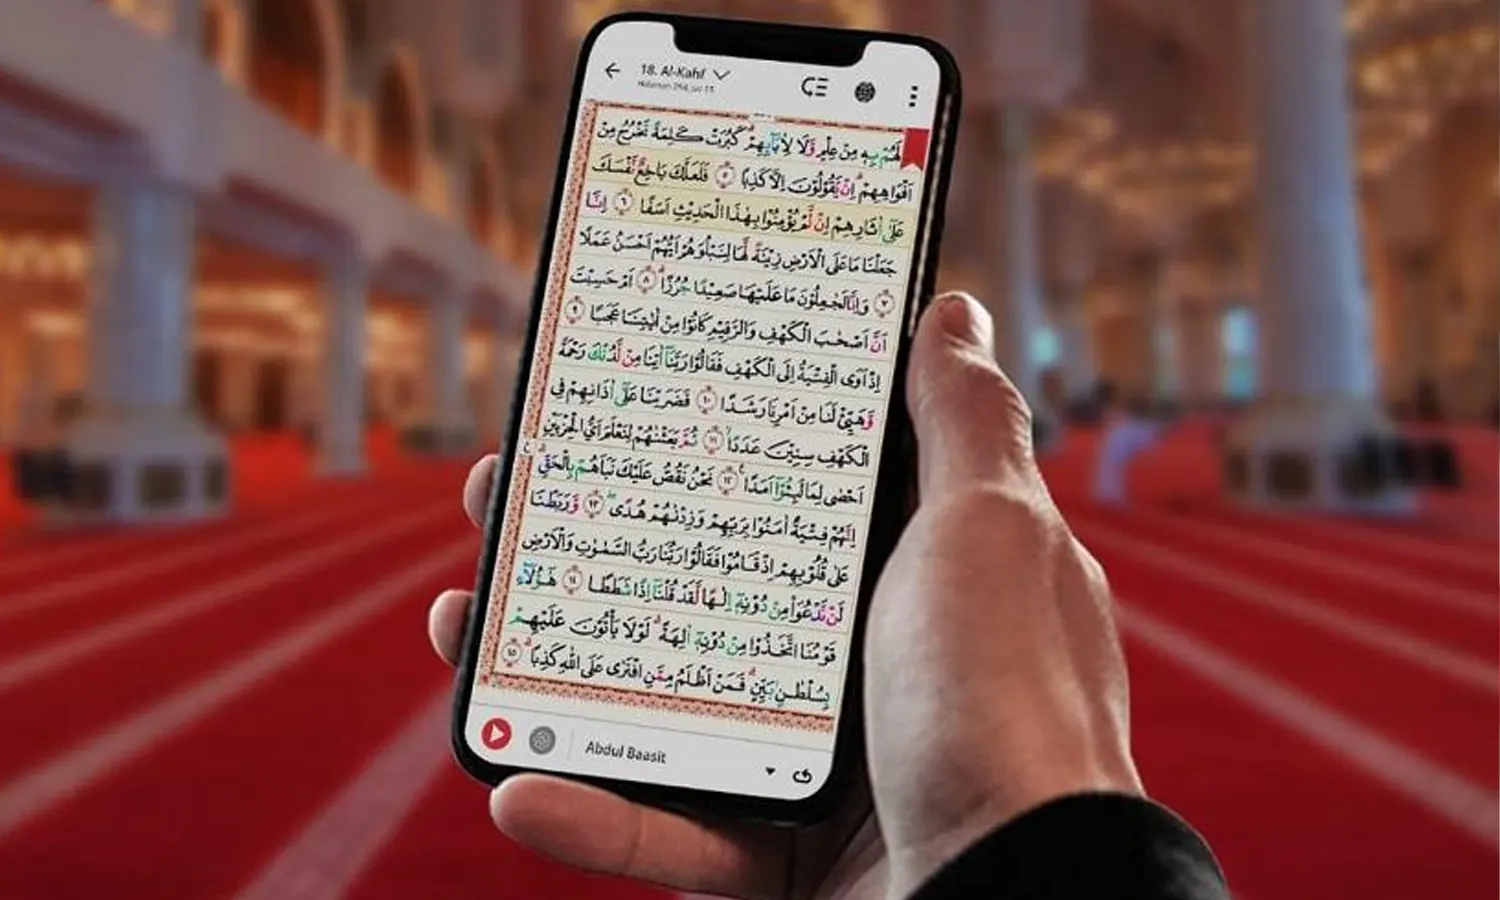 18. Al-Kahf
Halaman 294, Juz 15
لَهُمْ بِهٖ مِنْ عِلْمٍ وَّلَا لِاٰبَاۤىِٕهِمْۗ كَبُرَتْ كَلِمَةً تَخْرُجُ مِنْ
اَفْوَاهِهِمْۗ اِنْ يَّقُوْلُوْنَ اِلَّا كَذِبًا ٥ فَلَعَلَّكَ بَاخِعٌ نَّفْسَكَ
عَلٰٓى اٰثَارِهِمْ اِنْ لَّمْ يُؤْمِنُوْا بِهٰذَا الْحَدِيْثِ اَسَفًا ٦ اِنَّا
جَعَلْنَا مَا عَلَى الْاَرْضِ زِيْنَةً لَّهَا لِنَبْلُوَهُمْ اَيُّهُمْ اَحْسَنُ عَمَلًا
٧ وَاِنَّا لَجٰعِلُوْنَ مَا عَلَيْهَا صَعِيْدًا جُرُزًاۗ ٨ اَمْ حَسِبْتَ
اَنَّ اَصْحٰبَ الْكَهْفِ وَالرَّقِيْمِ كَانُوْا مِنْ اٰيٰتِنَا عَجَبًا ٩
اِذْ اَوَى الْفِتْيَةُ اِلَى الْكَهْفِ فَقَالُوْا رَبَّنَآ اٰتِنَا مِنْ لَّدُنْكَ رَحْمَةً
وَّهَيِّئْ لَنَا مِنْ اَمْرِنَا رَشَدًا ١٠ فَضَرَبْنَا عَلٰٓى اٰذَانِهِمْ فِى
الْكَهْفِ سِنِيْنَ عَدَدًاۙ ١١ ثُمَّ بَعَثْنٰهُمْ لِنَعْلَمَ اَيُّ الْحِزْبَيْنِ
اَحْصٰى لِمَا لَبِثُوْٓا اَمَدًا ࣖ ١٢ نَحْنُ نَقُصُّ عَلَيْكَ نَبَاَهُمْ بِالْحَقِّۗ
اِنَّهُمْ فِتْيَةٌ اٰمَنُوْا بِرَبِّهِمْ وَزِدْنٰهُمْ هُدًىۖ ١٣ وَّرَبَطْنَا
عَلٰى قُلُوْبِهِمْ اِذْ قَامُوْا فَقَالُوْا رَبُّنَا رَبُّ السَّمٰوٰتِ وَالْاَرْضِ
لَنْ نَّدْعُوَا۟ مِنْ دُوْنِهٖٓ اِلٰهًا لَّقَدْ قُلْنَآ اِذًا شَطَطًا ١٤ هٰٓؤُلَاۤءِ
قَوْمُنَا اتَّخَذُوْا مِنْ دُوْنِهٖٓ اٰلِهَةًۗ لَوْلَا يَأْتُوْنَ عَلَيْهِمْ
بِسُلْطٰنٍۢ بَيِّنٍۗ فَمَنْ اَظْلَمُ مِمَّنِ افْتَرٰى عَلَى اللّٰهِ كَذِبًاۗ ١٥
Abdul Baasit